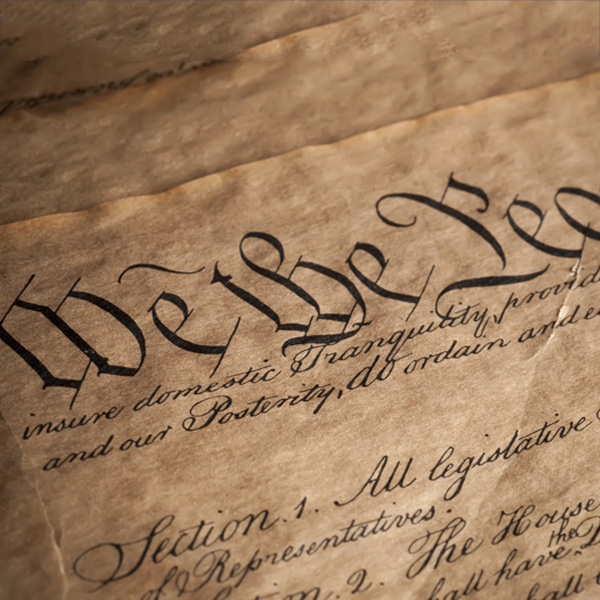 We the Peo
insure domestic Tranquility, provid
and our Posterity, do ordain and e
Section. 1. All legislative
of Representatives.
on. 2. The House
the
hall have
hall